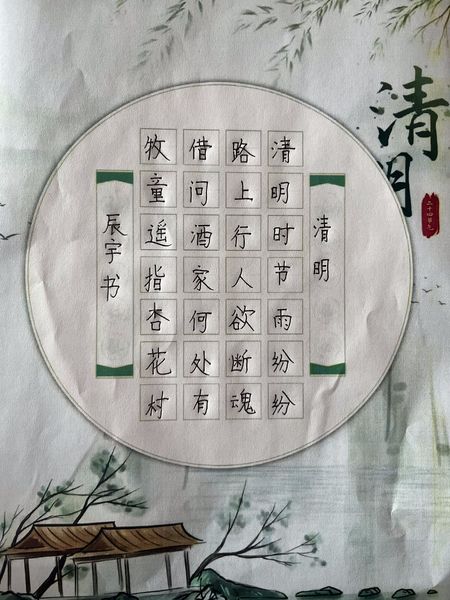 清明
二十四节气
清明
清明时节雨纷纷
路上行人欲断魂
借问酒家何处有
牧童遥指杏花村
辰宇书